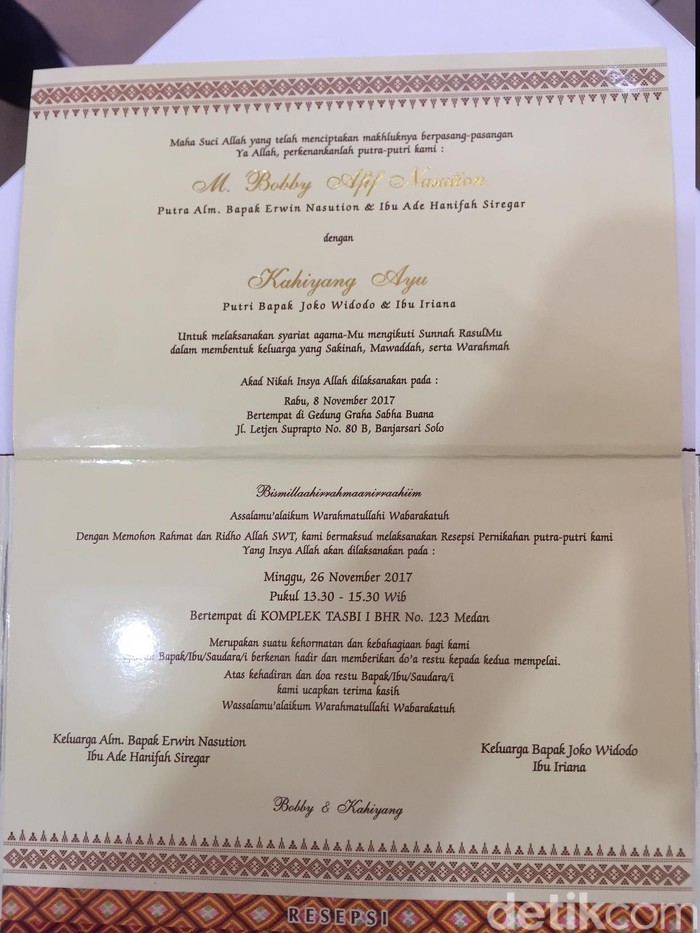 Maha Suci Allah yang telah menciptakan makhluknya berpasang-pasangan
Ya Allah, perkenankanlah putra-putri kami :
M. Bobby Afif Nasution
Putra Alm. Bapak Erwin Nasution & Ibu Ade Hanifah Siregar
dengan
Kahiyang Ayu
Putri Bapak Joko Widodo & Ibu Iriana
Untuk melaksanakan syariat agama-Mu mengikuti Sunnah RasulMu
dalam membentuk keluarga yang Sakinah, Mawaddah, serta Warahmah
Akad Nikah Insya Allah dilaksanakan pada :
Rabu, 8 November 2017
Bertempat di Gedung Graha Sabha Buana
Jl. Letjen Suprapto No. 80 B, Banjarsari Solo
Bismillaahirrahmaanirraahiim
Assalamu'alaikum Warahmatullahi Wabarakatuh
Dengan Memohon Rahmat dan Ridho Allah SWT, kami bermaksud melaksanakan Resepsi Pernikahan putra-putri kami
Yang Insya Allah akan dilaksanakan pada :
Minggu, 26 November 2017
Pukul 13.30 - 15.30 Wib
Bertempat di KOMPLEK TASBI I BHR No. 123 Medan
Merupakan suatu kehormatan dan kebahagiaan bagi kami
Bapak/Ibu/Saudara/i berkenan hadir dan memberikan do'a restu kepada kedua mempelai.
Atas kehadiran dan doa restu Bapak/Ibu/Saudara/i
kami ucapkan terima kasih
Wassalamu'alaikum Warahmatullahi Wabarakatuh
Keluarga Alm. Bapak Erwin Nasution
Ibu Ade Hanifah Siregar
Keluarga Bapak Joko Widodo
Ibu Iriana
Bobby & Kahiyang
RESEPSI
detikcom